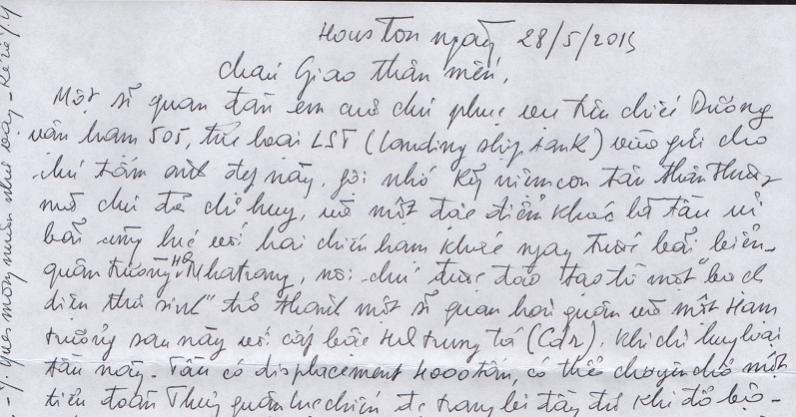 Houston ngày 28/5/2015
cháu Giao thân mến,
Một sĩ quan đàn em của chú phục vụ trên chiếc Dương
vận hạm 505, thuộc loại LST (Landing ship tank) vừa gửi cho
chú tấm ảnh đẹp này, gợi nhớ kỷ niệm con tàu thân thương
mà chú đã chỉ huy, và một đặc điểm khác là tàu ủi
bãi cùng lúc với hai chiến hạm khác ngay trước bãi biển
quân trường HQ Nhatrang, nơi chú được đào tạo từ một "bạch
diện thư sinh" trở thành một sĩ quan hải quân và một Hạm
trưởng sau này với cấp bậc HQ trung tá (Cdr), khi chỉ huy loại
tàu này. Tàu có displacement 4000 tấn, có thể chuyên chở một
tiểu đoàn Thủy quân lục chiến để trang bị đầy đủ khi đổ bộ-